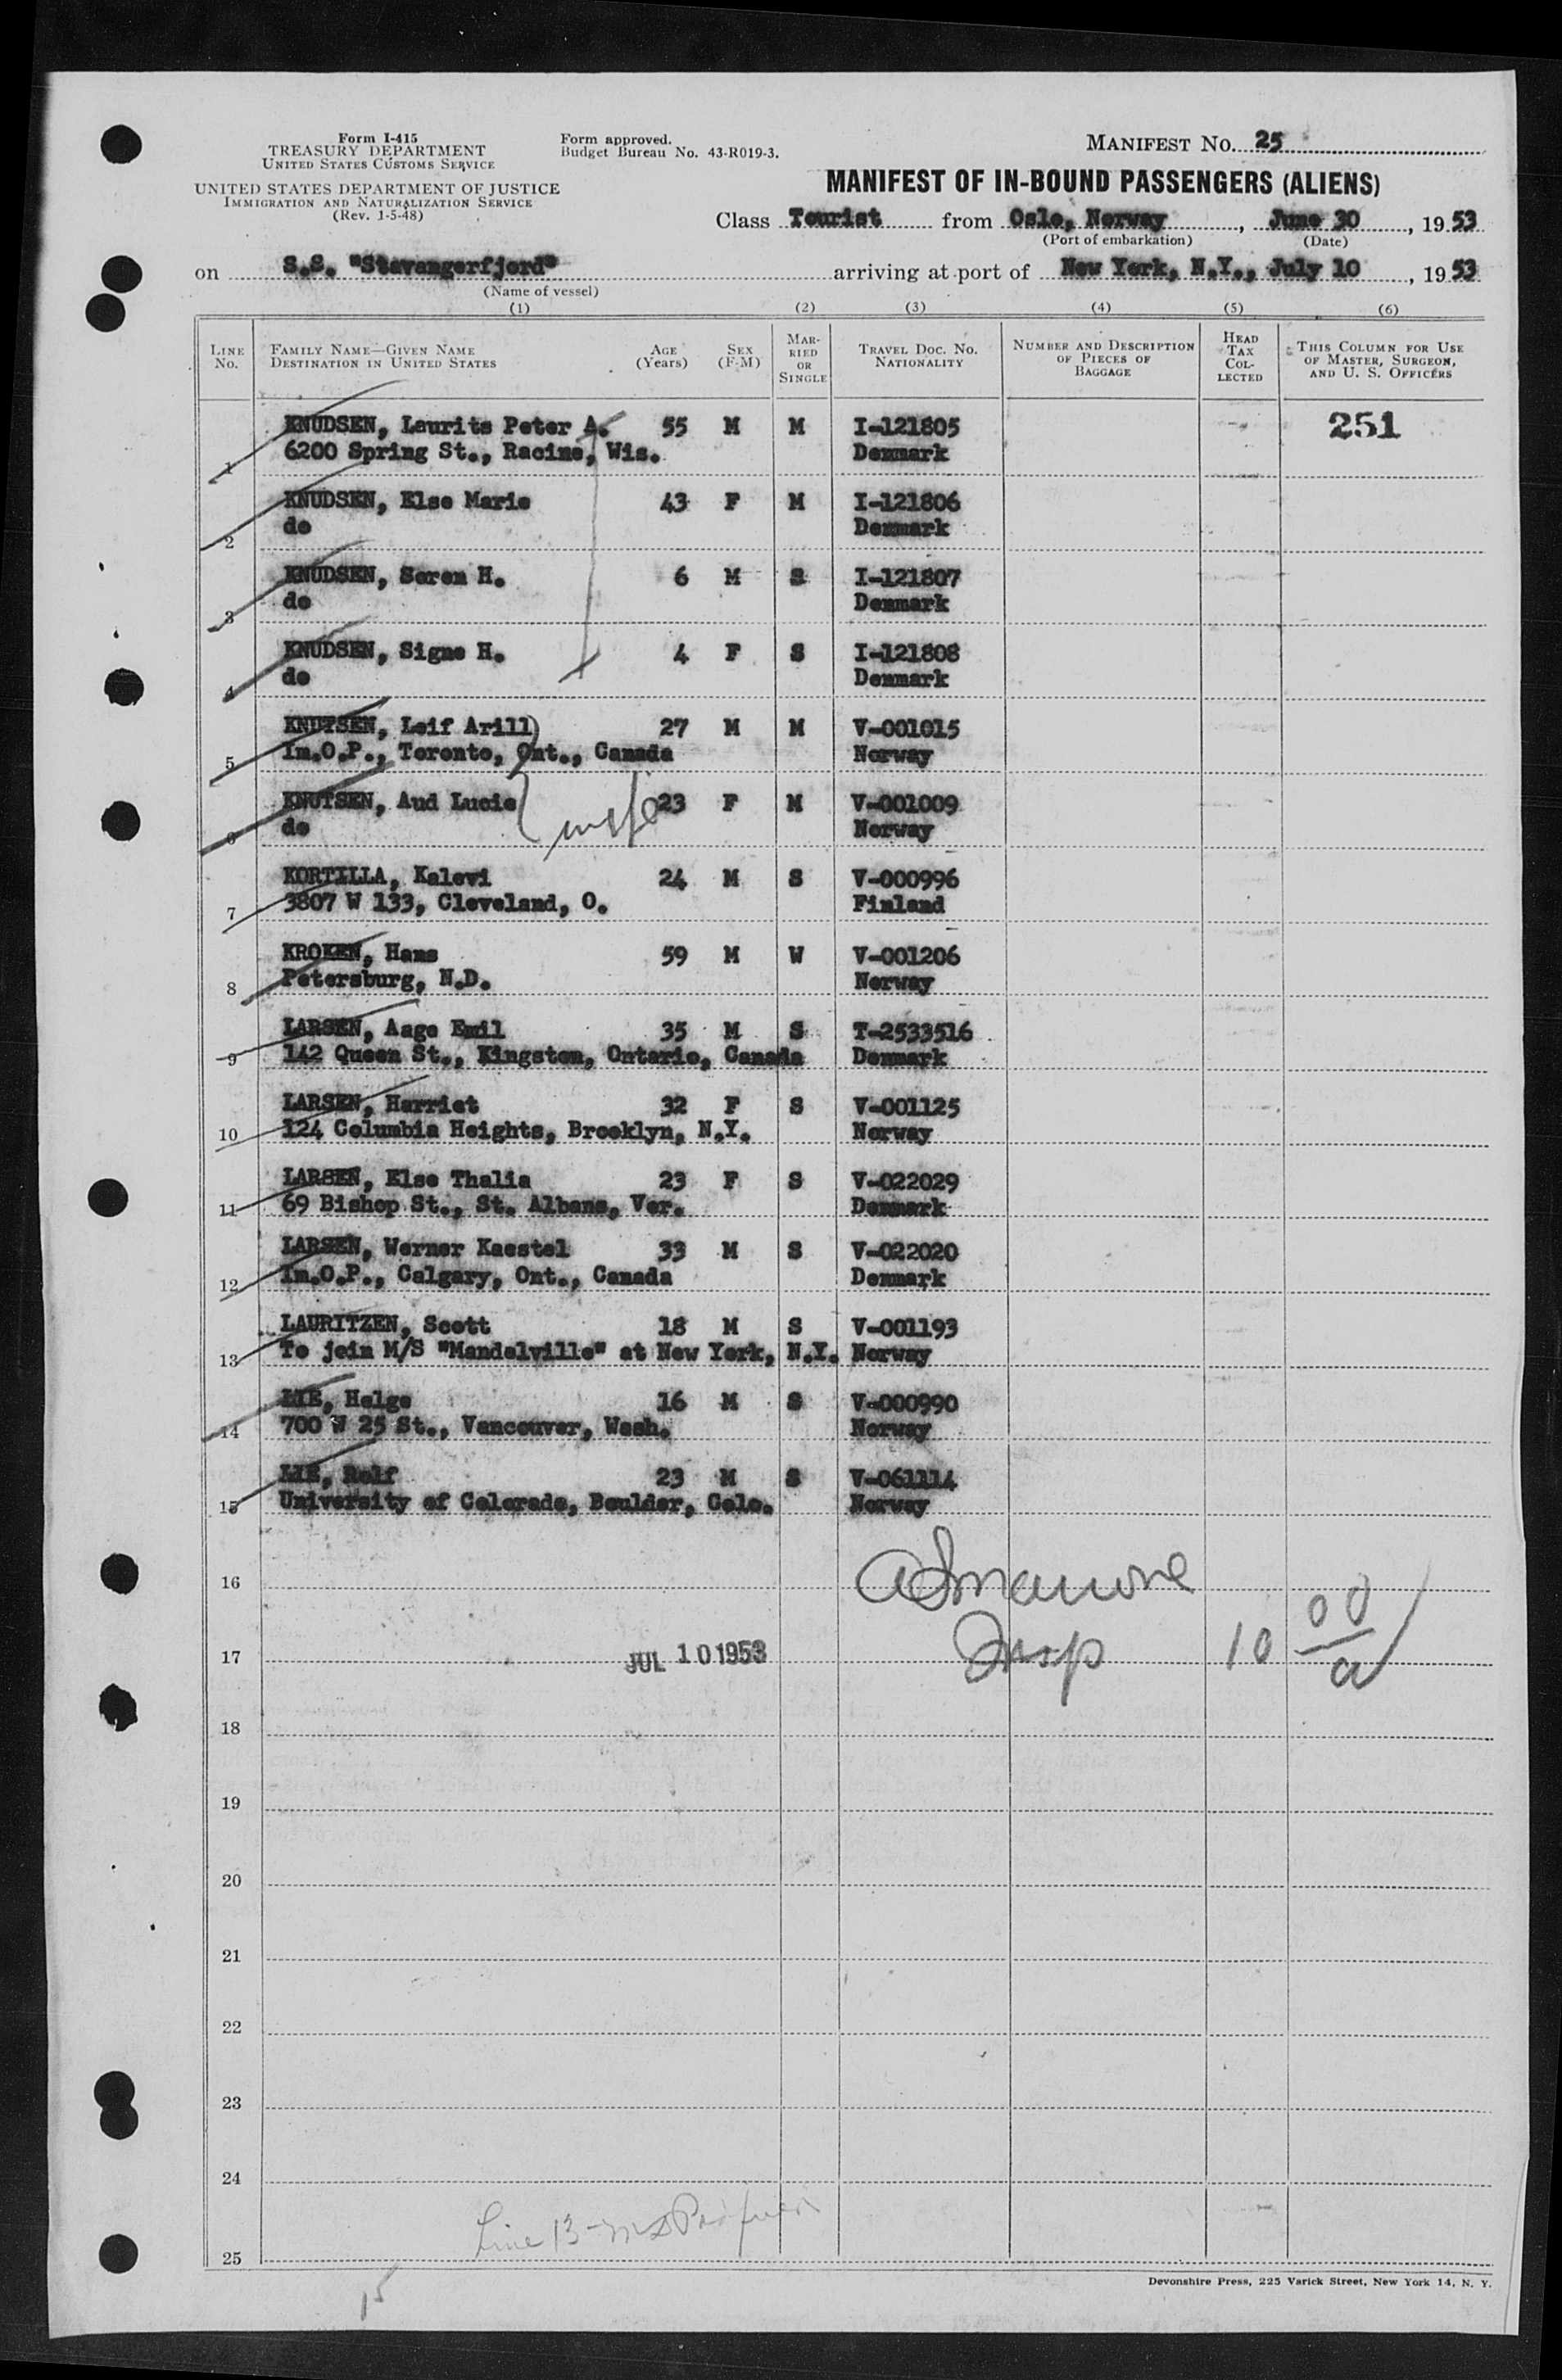 Form I-415
TREASURY DEPARTMENT
UNITED STATES CUSTOMS SERVICE
UNITED STATES DEPARTMENT OF JUSTICE
IMMIGRATION AND NATURALIZATION SERVICE
(Rev. 1-5-48)
Form approved.
Budget Bureau No. 43-R019-3.
MANIFEST NO. 25
MANIFEST OF IN-BOUND PASSENGERS (ALIENS)
Class Tourist from Oslo, Norway, June 30, 1953
(Port of embarkation) (Date)
on S.S. "Stavangerfjord" arriving at port of New York, N.Y., July 10, 1953
(Name of vessel)
(1) (2) (3) (4) (5) (6)
LINE No.
FAMILY NAME—GIVEN NAME
DESTINATION IN UNITED STATES
AGE (Years)
SEX (F-M)
MARRIED OR SINGLE
TRAVEL DOC. NO.
NATIONALITY
NUMBER AND DESCRIPTION OF PIECES OF BAGGAGE
HEAD TAX COLLECTED
THIS COLUMN FOR USE OF MASTER, SURGEON, AND U. S. OFFICERS
KNUDSEN, Laurits Peter A. 55 M M I-121805 251
1 6200 Spring St., Racine, Wis. Denmark
KNUDSEN, Else Marie 43 F M I-121806
2 do Denmark
KNUDSEN, Soren H. 6 M S I-121807
3 do Denmark
KNUDSEN, Signe H. 4 F S I-121808
4 do Denmark
KNUTSEN, Leif Arill 27 M M V-001015
5 Im.O.P., Toronto, Ont., Canada Norway
KNUTSEN, Aud Lucie 23 F M V-001009
6 do Norway
KORTILLA, Kalevi 24 M S V-000996
7 3807 W 133, Cleveland, O. Finland
KROKEN, Hans 59 M W V-001206
8 Petersburg, N.D. Norway
LARSEN, Aage Emil 35 M S T-2533516
9 142 Queen St., Kingston, Ontario, Canada Denmark
LARSEN, Harriet 32 F S V-001125
10 124 Columbia Heights, Brooklyn, N.Y. Norway
LARSEN, Else Thalia 23 F S V-022029
11 69 Bishop St., St. Albans, Ver. Denmark
LARSEN, Werner Kaestel 33 M S V-022020
12 Im.O.P., Calgary, Ont., Canada Denmark
LAURITZEN, Scott 18 M S V-001193
13 To join M/S "Mandelville" at New York, N.Y. Norway
LIE, Helge 16 M S V-000990
14 700 W 25 St., Vancouver, Wash. Norway
LIE, Rolf 23 M S V-061114
15 University of Colorado, Boulder, Colo. Norway
16
17 JUL 10 1953 Insp 10 00
18
19
20
21
22
23
24
Line 13
25
Devonshire Press, 225 Varick Street, New York 14, N. Y.
15